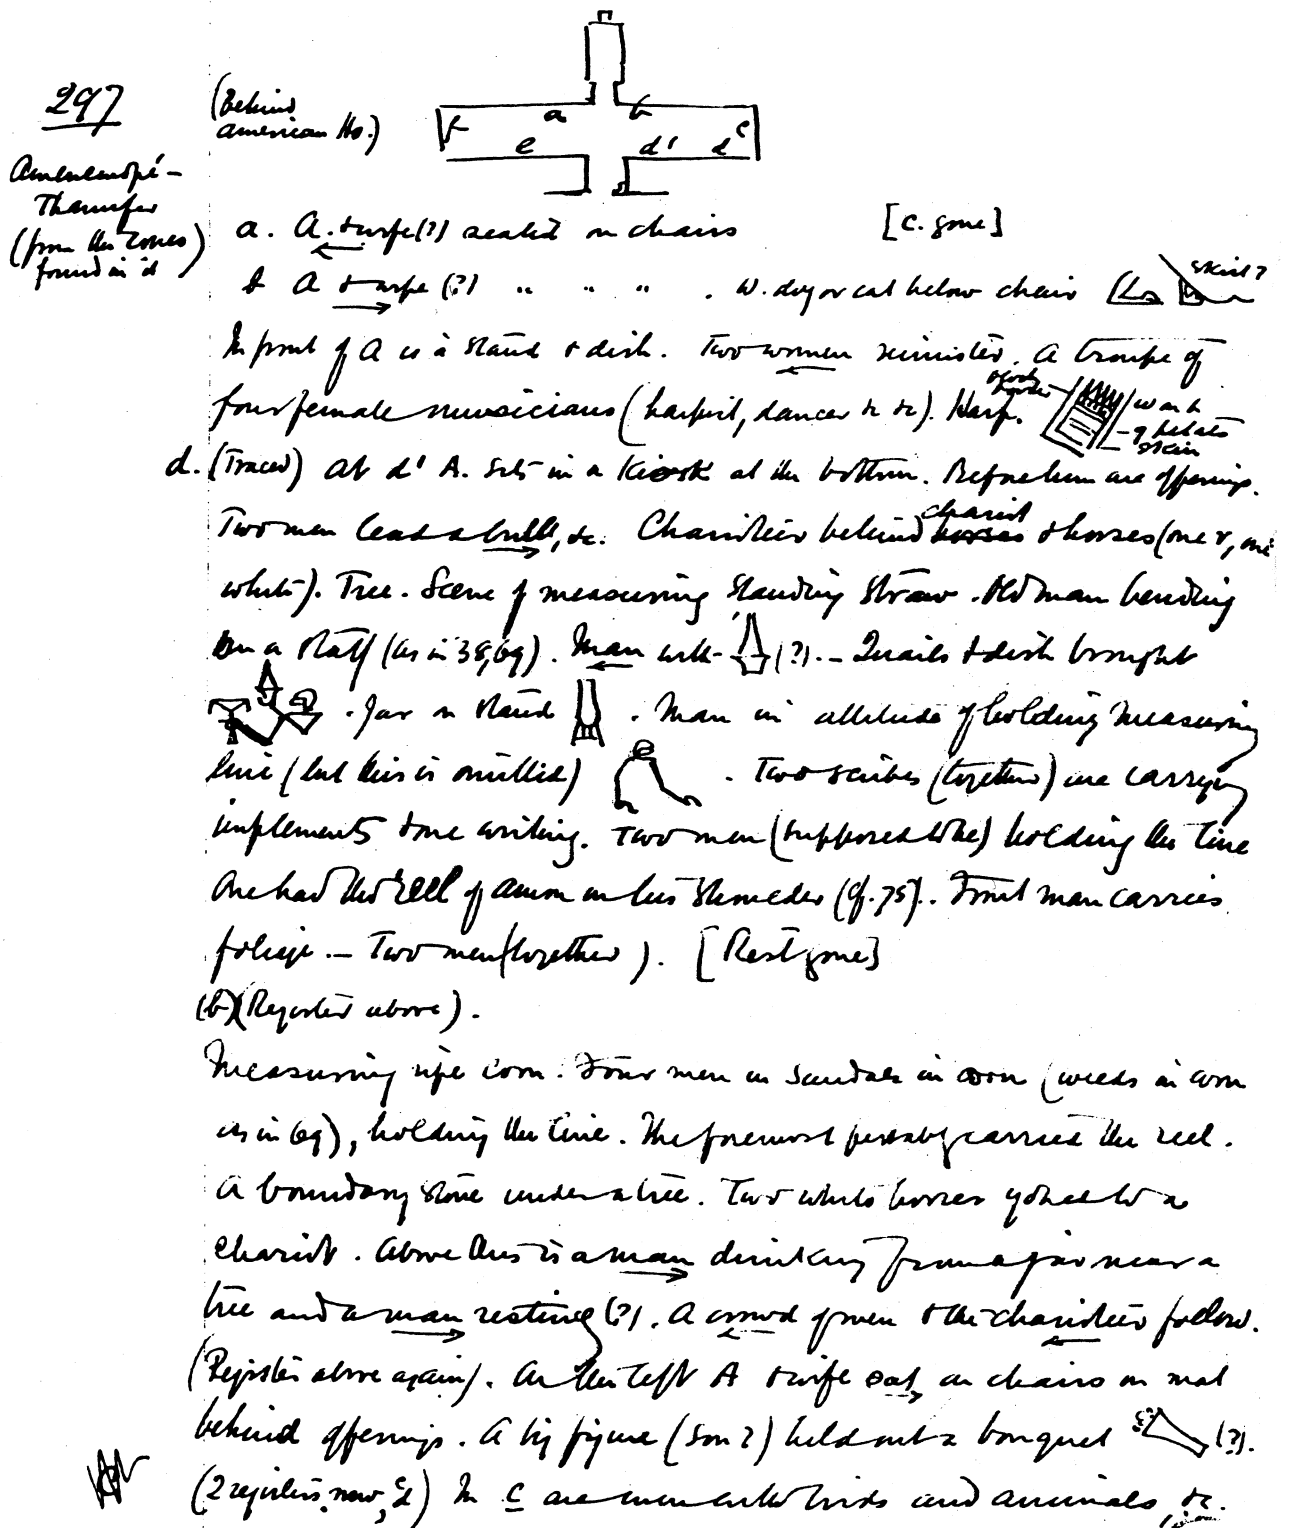 297
(Behind
american Ho.)
a b c
f
e d' d
Amenemōpé-
Thanufer
(from the cones)
found in it
a. A. & wife (?) seated on chairs [C. gone]
b A & wife (?) " " " . W. dog or cat below chair skirt?
In front of A is a stand & dish. Two women minister. A troupe of
four female musicians (harpist, dancer &c &c). Harp.
wood
work
of plates
skin
d. (Traced) At d' A. sits in a Kiosk at the bottom. Before him are offerings.
Two men lead a bull, &c. Charioteer behind chariot horses & horses (one r, one
white). Tree. Scene of measuring standing straw. Old man bending
on a staff (as in 38, 69). Man with (?). – Quails & dish brought
. Jar on stand . Man in attitude of holding measuring
line (but this is omitted) . Two scribes (together) are carrying
implements & one writing. Two men (supposed to be) holding the line
One had the reel of Amon on his shoulder (cf. 75). Front man carries
foliage. – Two men (together). [Rest gone]
(b) (Register above).
Measuring ripe corn. Four men in sandals in corn (weeds in corn
as in 69), holding the line. The foremost probably carried the reel.
A boundary stone under a tree. Two white horses yoked to a
chariot. Above this is a man drinking from a jar near a
tree and a man resting (?). A crowd of men & the charioteer follow.
(Register above again). On the left A & wife sat on chairs on mat
behind offerings. A big figure (son?) held out a bouquet (?).
(2 registers now, c, d) In c are birds and animals &c.